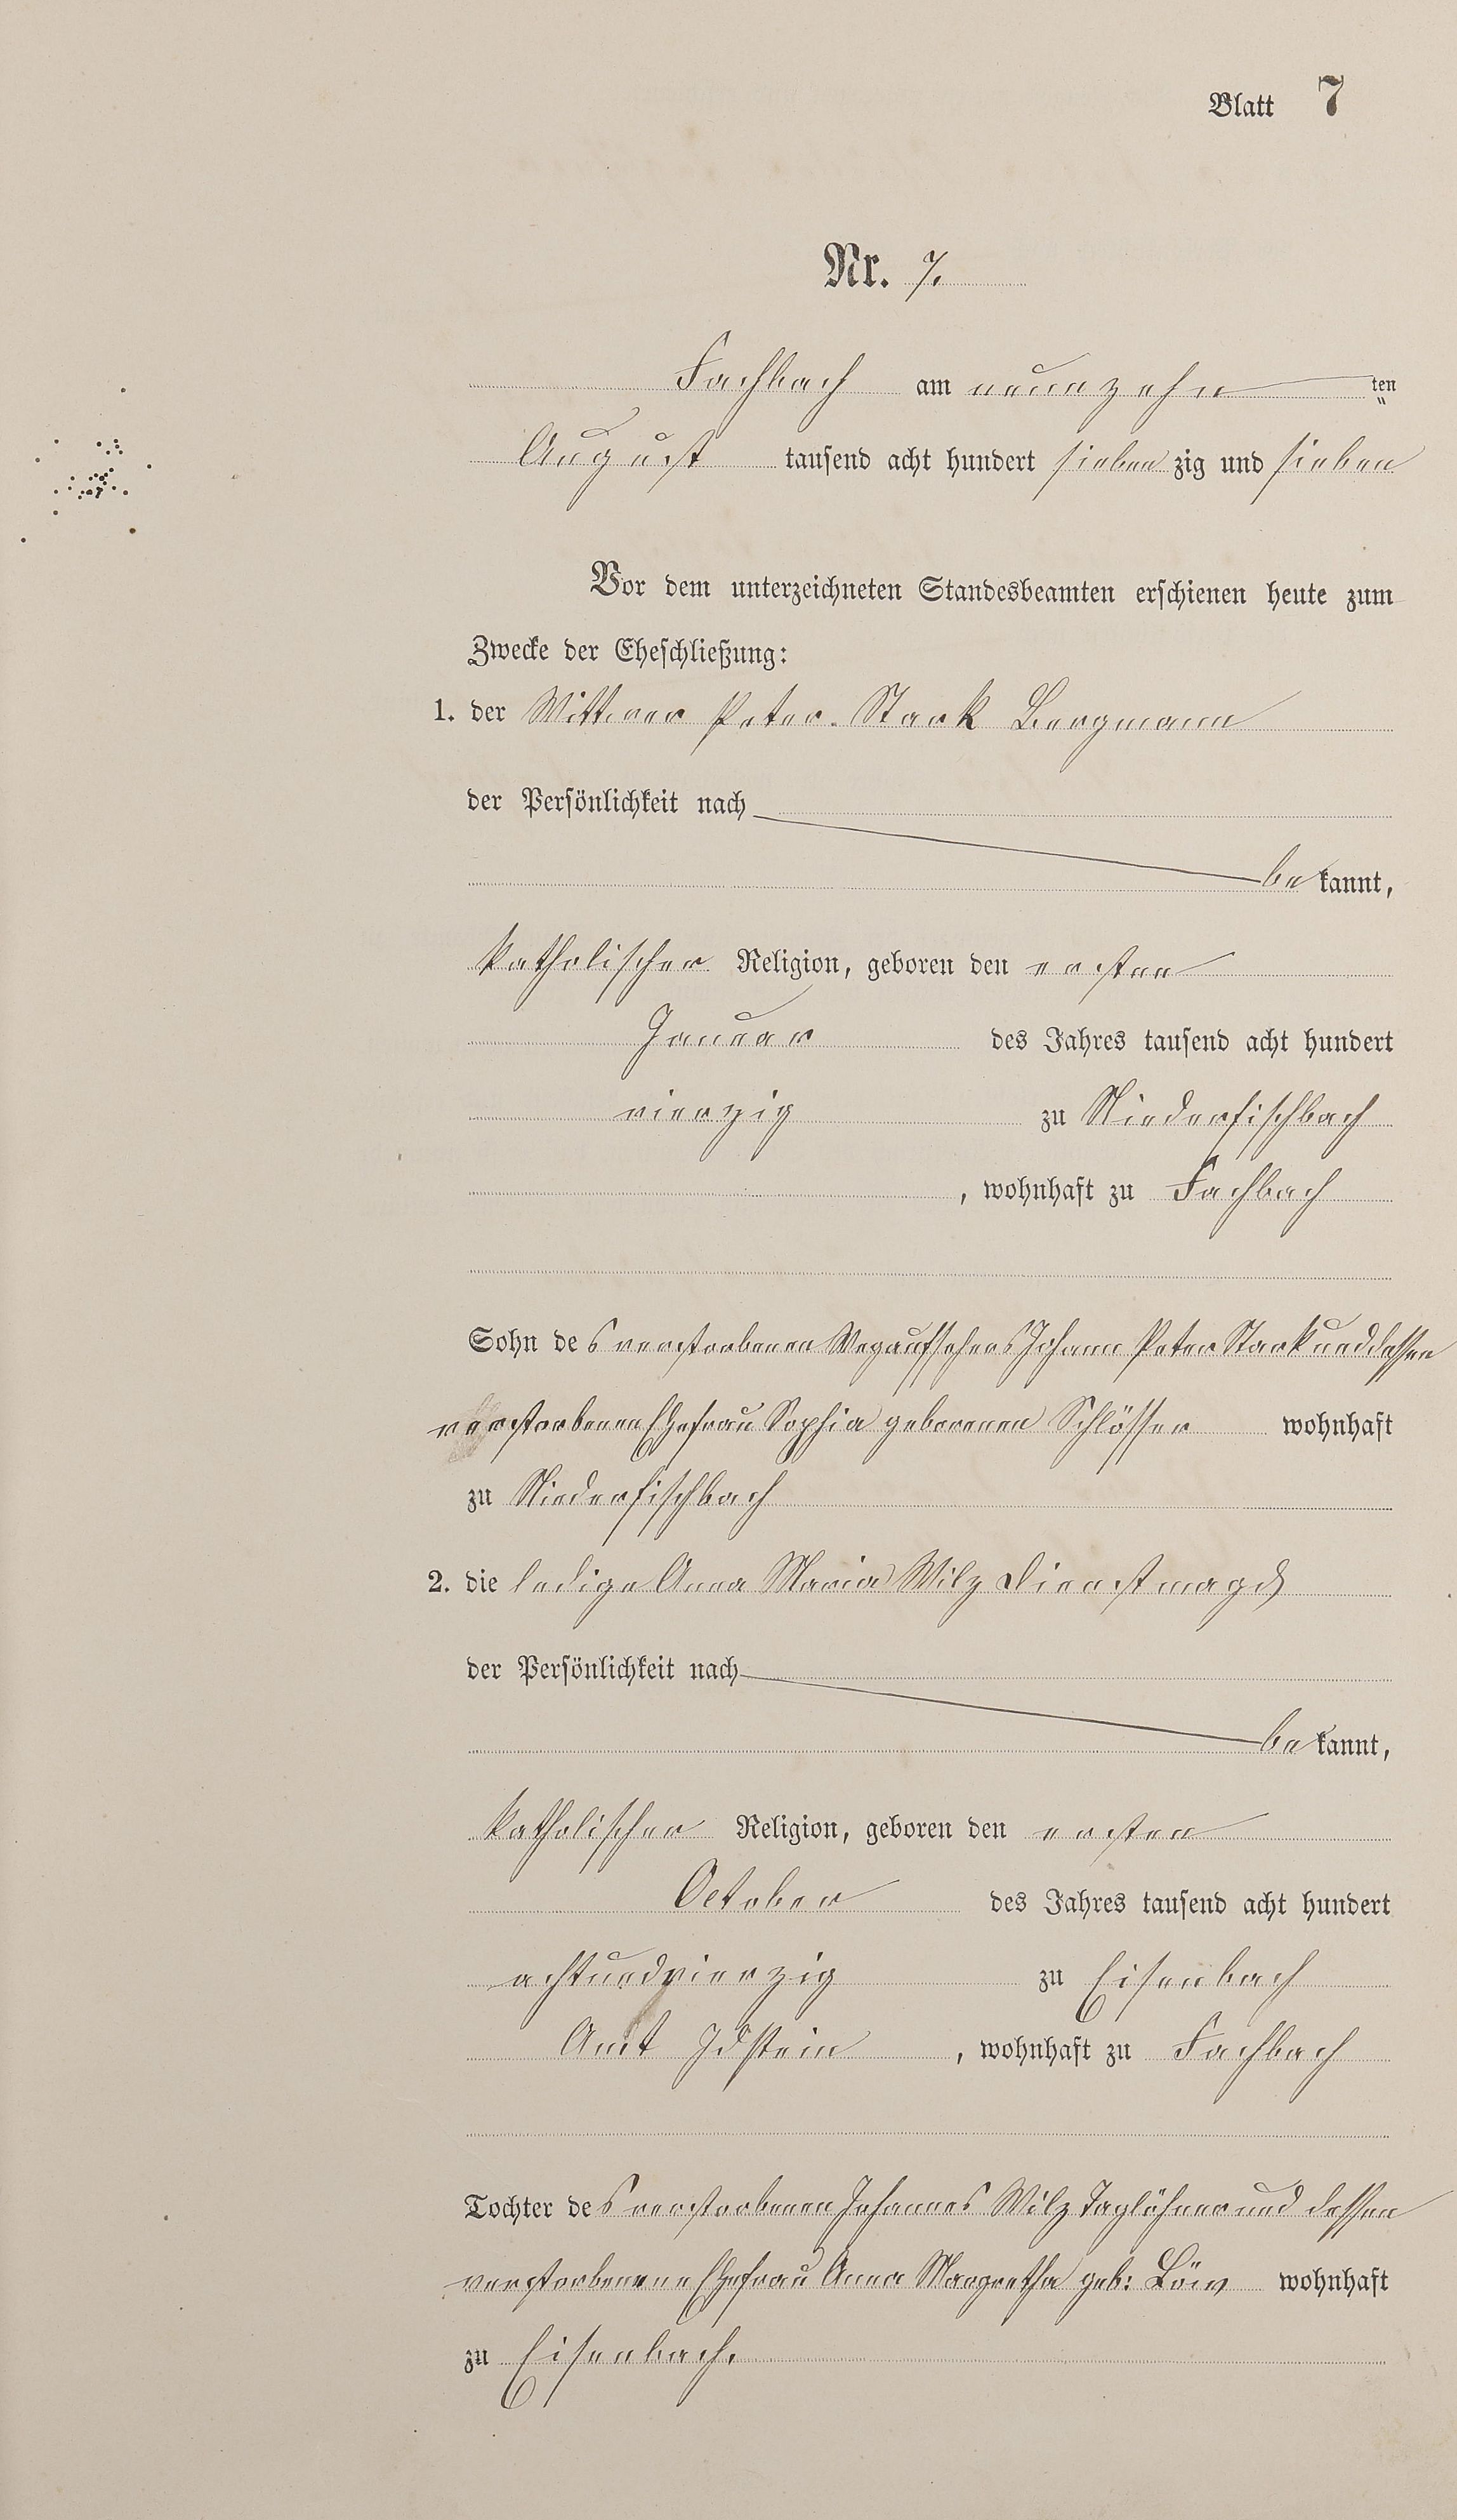 Blatt 7
Nr. 7.
Fachbach am neunzehn ten
August tausend acht hundert siebenzig und sieben
Vor dem unterzeichneten Standesbeamten erschienen heute zum
Zwecke der Eheschließung:
1. der Wittwer Peter Stark Bergmann
der Persönlichkeit nach
bekannt,
katholischer Religion, geboren den ersten
Januar des Jahres tausend acht hundert
vierzig zu Niederfischbach
, wohnhaft zu Fachbach
Sohn des verstorbenen Wegaufsehers Johann Peter Stark und dessen
verstorbenen Ehefrau Sophia geborenen Schlösser wohnhaft
zu Niederfischbach
2. die ledige Anna Maria Wilz Dienstmagd
der Persönlichkeit nach
bekannt,
katholischer Religion, geboren den ersten
October des Jahres tausend acht hundert
achtundvierzig zu Eisenbach
Amt Idstein , wohnhaft zu Fachbach
Tochter des verstorbenen Johannes Wilz Taglöhner und dessen
verstorbenene Ehefrau Anna Margretha geb: Löw wohnhaft
zu Eisenbach.